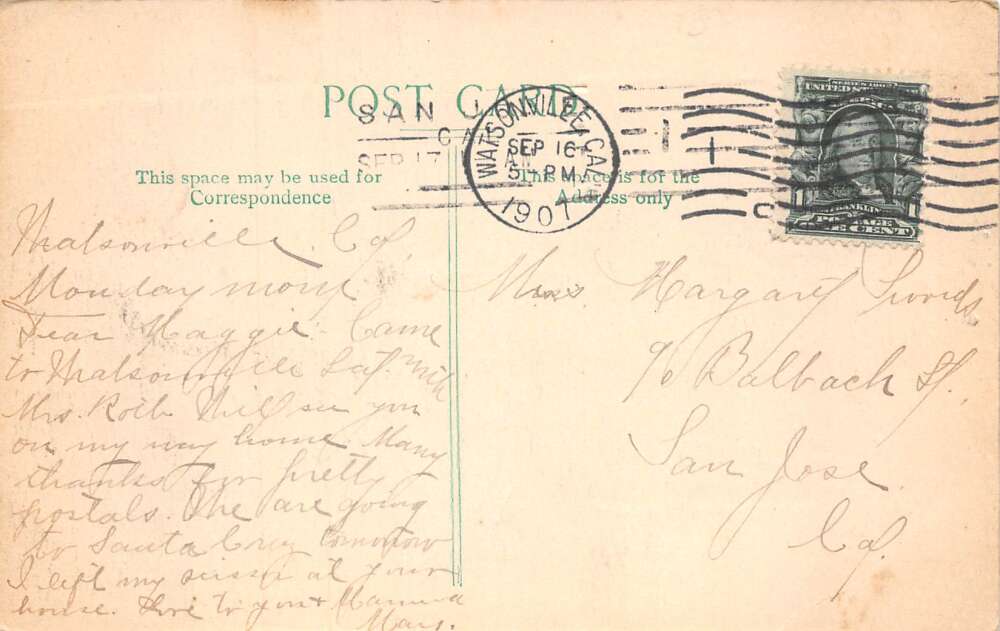 POST CARD
SAN J
CA
SEP 17
WATSONVILLE, CAL.
SEP 16
5 - PM
1907
SERIES 1902
UNITED STATES
FRANKLIN
POSTAGE
ONE CENT
This space may be used for
Correspondence
This space is for the
Address only
Watsonville Cal.
Monday morn
Dear Maggie: Came
to Watsonville Sat. with
Mrs. Roib Will see you
on my way home Many
thanks for pretty
postals. We are going
to Santa Cruz tomorrow
I left my at your
house. Love to you & Mamma
Mary.
Miss Margaret
90 Balbach St.
San Jose
Cal.